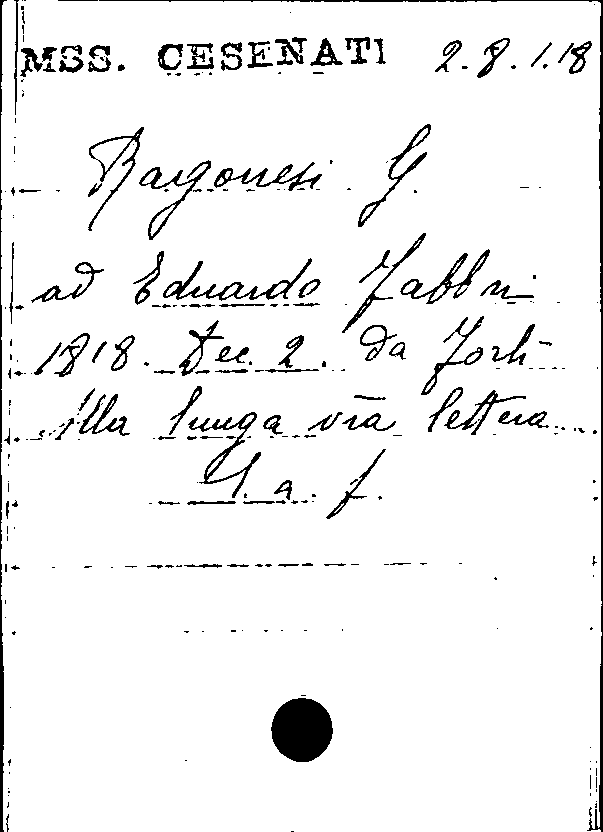 MSS. CESENATI 2.8.1.18
Bargonesi G.
ad Eduardo Fabbri
1818. Dec. 2. da Forlì
Alla lunga vra lettera
L. a. f.